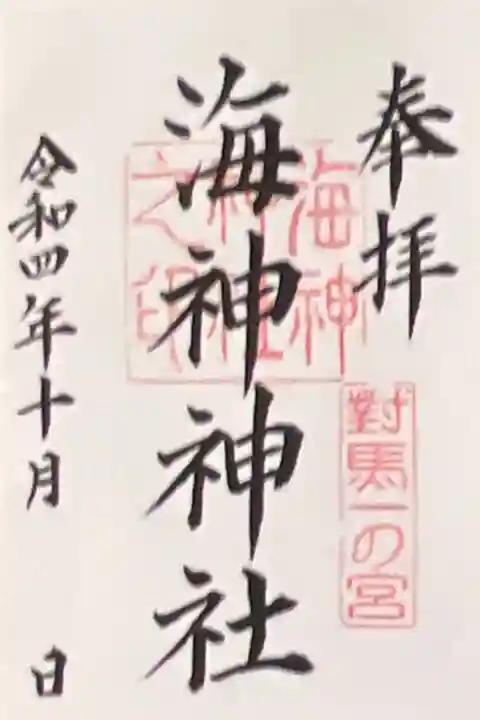 奉拝
對馬一の宮
海神神社
海神神社之印
令和四年十月 日